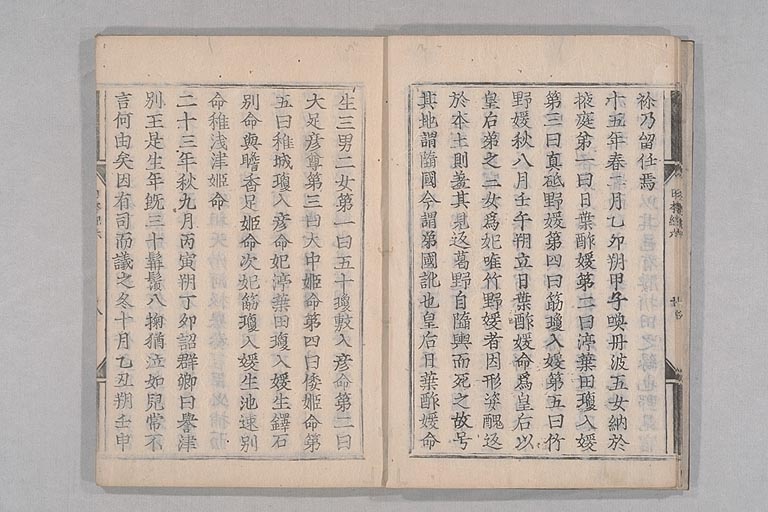 祢乃留住焉
十五年春二月乙卯朔甲子喚丹波五女納於
掖庭第一曰日葉酢媛第二曰渟葉田瓊入媛
第三曰真砥野媛第四曰筋瓊入媛第五曰竹
野媛秋八月壬午朔立日葉酢媛命爲皇后以
皇后弟之三女爲妃唯竹野媛者因形姿醜返
於本土則羞其見返葛野自隨輿而死之故号
其地謂隨國今謂弟國訛也皇后日葉酢媛命
生三男二女第一曰五十瓊敷入彦命第二曰
大足彦尊第三曰大中姫命第四曰倭姫命第
五曰稚城瓊入彦命妃渟葉田瓊入媛生鐸石
別命與膽香足姫命次妃筋瓊入媛生池速別
命稚淺津姫命
二十三年秋九月丙寅朔丁卯詔群卿曰譽津
別王是生年既三十髯鬚八掬猶泣如兒常不
言何由矣因有司而議之冬十月乙丑朔壬申